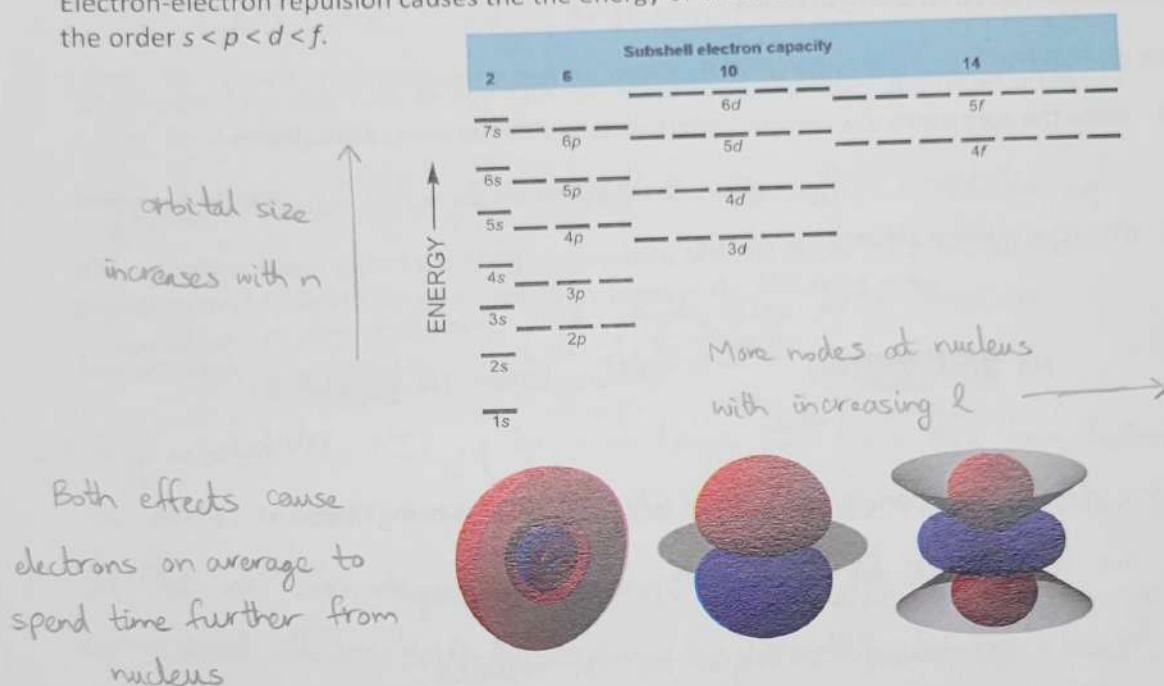 Electron-electron repulsion causes the the energy
the order s < p < d < f.
Subshell electron capacity
2 6 10 14
6d 5f
7s 6p 5d 4f
6s 5p 4d
5s 4p 3d
4s 3p
3s 2p
2s
1s
ENERGY
orbital size
increases with n
More nodes at nucleus
with increasing l
Both effects cause
electrons on average to
spend time further from
nucleus